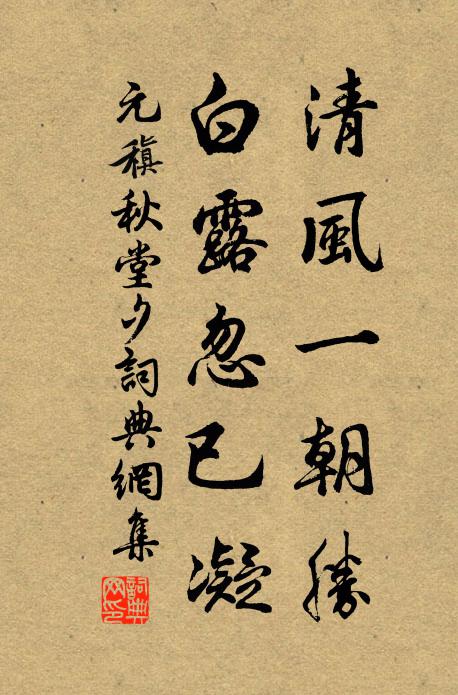 清風一朝勝
白露忽已凝
元稹秋堂夕詞典網集
詞典网印